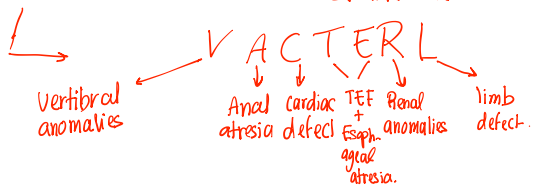 V A C T E R L
Vertibral
anomalies
Anal
atresia
cardiac
defect
TEF
+
Esoph-
ageal
atresia.
Renal
anomalies
limb
defect.